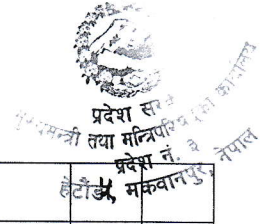 प्रदेश सर
मुख्यमन्त्री तथा मन्त्रिपरिषद्को कार्यालय
प्रदेश नं. ३
हेटौंडा, मकवानपुर, नेपाल